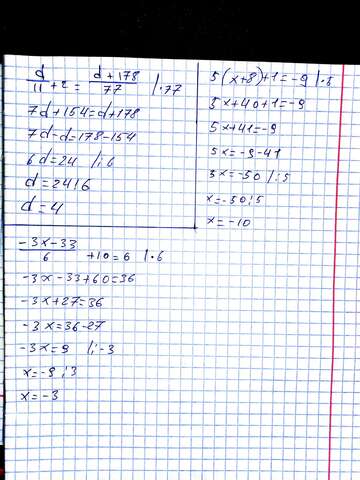 d/11 + 2 = d+178/77 /·77
7d+154=d+178
7d-d=178-154
6d=24 /:6
d=24:6
d=4
5(x+8)+1=-9 /·5
5x+40+1=-9
5x+41=-9
5x=-9-41
5x=-50 /:5
x=-50:5
x=-10
-3x-33/6 +10=6 /·6
-3x-33+60=36
-3x+27=36
-3x=36-27
-3x=9 /:-3
x=-9:3
x=-3